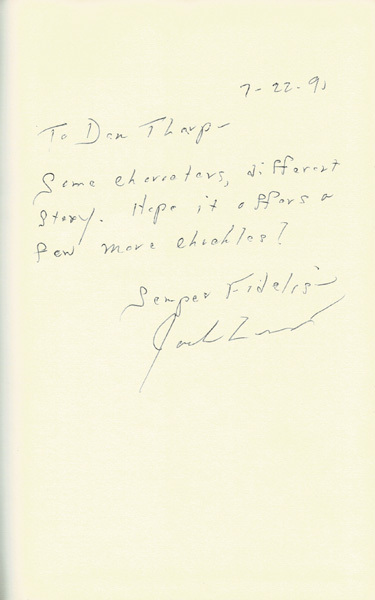 7-22-91
To Dan Tharp—
Same characters, different
story. Hope it offers a
few more chuckles!
Semper Fidelis—
Jack